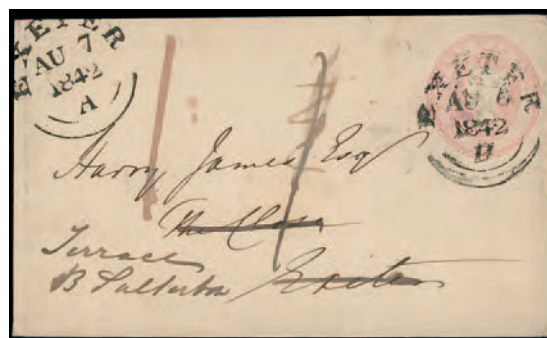 EXETER
AU 7
1842
A
EXETER
AU 6
1842
Harry James Esq
The Close
Terrace
B Salterton Exeter